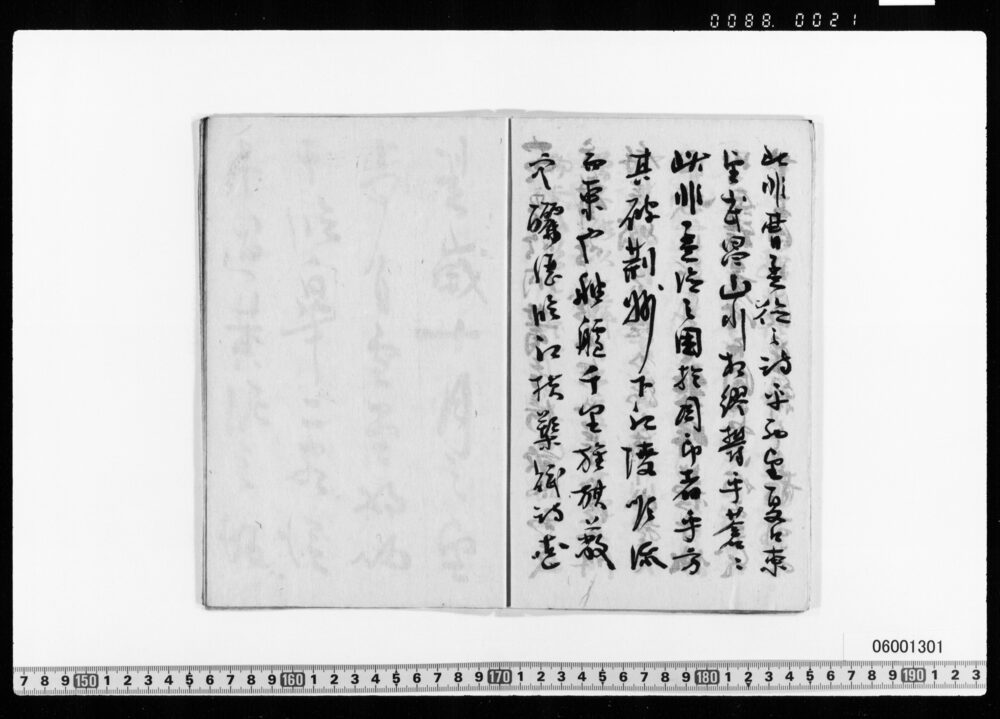 0088. 0021
此非曹孟德之詩乎西望夏口東
望武昌山川相繆鬱乎蒼〻
此非孟德之困於周郎者乎方
其破荊州下江陵順流
而東也舳艫千里旌旗蔽
空釃酒臨江橫槊賦詩
06001301
7 8 9 150 1 2 3 4 5 6 7 8 9 160 1 2 3 4 5 6 7 8 9 170 1 2 3 4 5 6 7 8 9 180 1 2 3 4 5 6 7 8 9 190 1 2 3